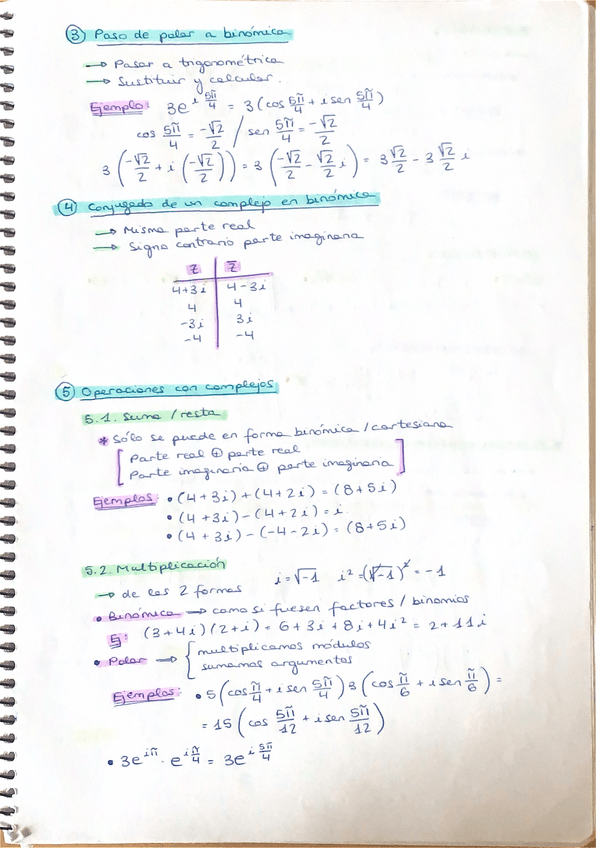 ③ Paso de polar a binómica
→ Pasar a trigonométrica
→ Sustituir y calcular.
Ejemplo: 3e^{i 5π/4} = 3(cos 5π/4 + i sen 5π/4)
cos 5π/4 = -√2/2 / sen 5π/4 = -√2/2
3(-√2/2 + i(-√2/2)) = 3(-√2/2 - √2/2 i) = 3 √2/2 - 3 √2/2 i
④ Conjugado de un complejo en binómica
→ Misma parte real
→ Signo contrario parte imaginaria
z | z̅
4+3i | 4-3i
4 | 4
-3i | 3i
-4 | -4
⑤ Operaciones con complejos
5.1. Suma / resta
* Sólo se puede en forma binómica / cartesiana
[Parte real ⊕ parte real
Parte imaginaria ⊕ parte imaginaria]
Ejemplos: • (4+3i)+(4+2i)=(8+5i)
• (4+3i)-(4+2i)=i
• (4+3i)-(-4-2i)=(8+5i)
5.2. Multiplicación
→ de las 2 formas i=√-1 i²=(√-1)²=-1
• Binómica → como si fuesen factores / binomios
Ej: (3+4i)(2+i)=6+3i+8i+4i²=2+11i
• Polar → { multiplicamos módulos
sumamos argumentos
Ejemplos: • 5(cos π/4 + i sen 5π/4) 3(cos π/6 + i sen π/6) =
= 15(cos 5π/12 + i sen 5π/12)
• 3e^{iπ} · e^{i π/4} = 3e^{i 5π/4}